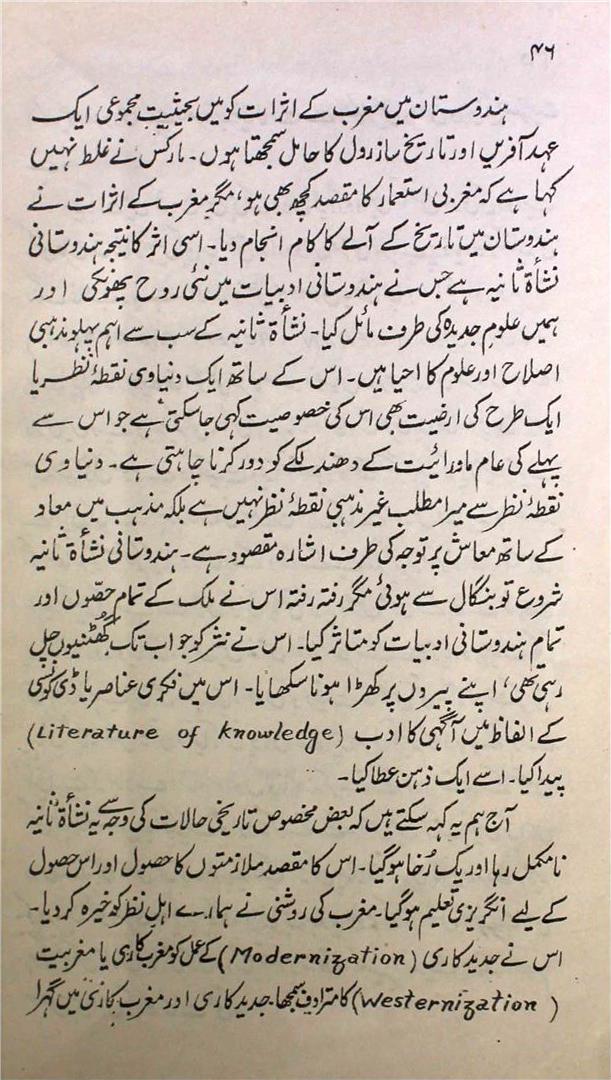 ۴۶
ہندوستان میں مغرب کے اثرات کو میں بحیثیتِ مجموعی ایک
عہد آفریں اور تاریخ ساز رول کا حامل سمجھتا ہوں۔ مارکس نے غلط نہیں
کہا ہے کہ مغربی استعمار کا مقصد کچھ بھی ہو، مگر مغرب کے اثرات نے
ہندوستان میں تاریخ کے آلے کا کام انجام دیا۔ اسی اثر کا نتیجہ ہندوستانی
نشأۃ ثانیہ ہے جس نے ہندوستانی ادبیات میں نئی روح پھونکی اور
ہمیں علومِ جدیدہ کی طرف مائل کیا۔ نشأۃ ثانیہ کے سب سے اہم پہلو مذہبی
اصلاح اور علوم کا احیا ہیں۔ اس کے ساتھ ایک دنیاوی نقطۂ نظر یا
ایک طرح کی ارضیت بھی اس کی خصوصیت کہی جا سکتی ہے جو اس سے
پہلے کی عام ماورائیت کے دھندلکے کو دور کرنا چاہتی ہے۔ دنیاوی
نقطۂ نظر سے میرا مطلب غیر مذہبی نقطۂ نظر نہیں ہے بلکہ مذہب میں معاد
کے ساتھ معاش پر توجہ کی طرف اشارہ مقصود ہے۔ ہندوستانی نشأۃ ثانیہ
شروع تو بنگال سے ہوئی مگر رفتہ رفتہ اس نے ملک کے تمام حصّوں اور
تمام ہندوستانی ادبیات کو متاثر کیا۔ اس نے نثر کو جو اب تک گھٹنیوں چل
رہی تھی، اپنے پیروں پر کھڑا ہونا سکھایا۔ اس میں فکری عناصر یا ڈی کوئنسی
کے الفاظ میں آگہی کا ادب (Literature of knowledge)
پیدا کیا۔ اسے ایک ذہن عطا کیا۔
آج ہم یہ کہہ سکتے ہیں کہ بعض مخصوص تاریخی حالات کی وجہ سے یہ نشأۃ ثانیہ
نامکمل رہا اور یک رُخا ہو گیا۔ اس کا مقصد ملازمتوں کا حصول اور اس حصول
کے لیے انگریزی تعلیم ہو گیا۔ مغرب کی روشنی نے ہمارے اہلِ نظر کو خیرہ کر دیا۔
اس نے جدید کاری (Modernization) کے عمل کو مغرب کاری یا مغربیت
(Westernization) کا مترادف سمجھا۔ جدید کاری اور مغرب کاری میں گہرا